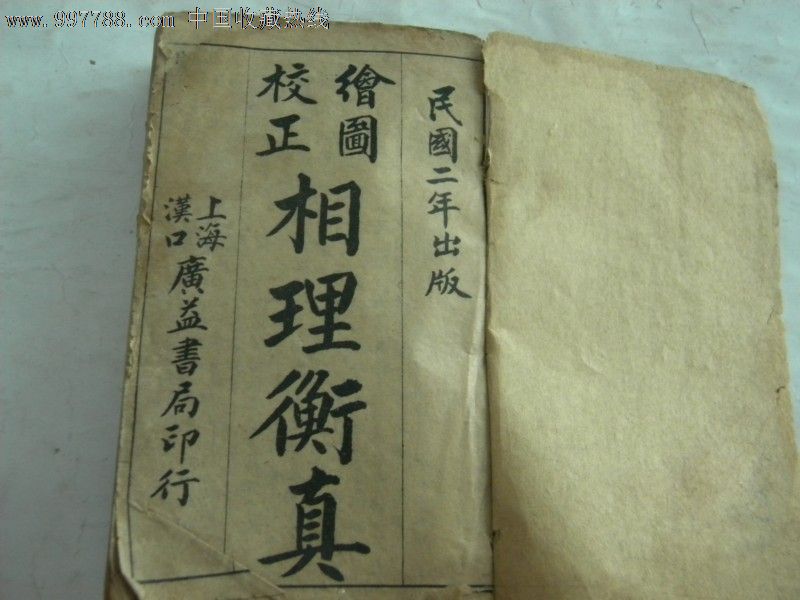 www.997788.com 中国收藏热线
民國二年出版
繪圖
校正
相理衡真
上海
漢口
廣益書局印行